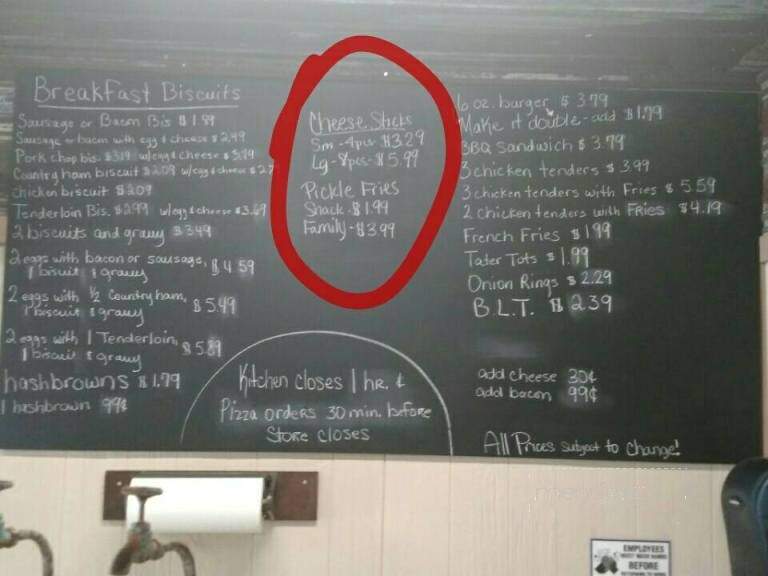 Breakfast Biscuits
Sausage or Bacon Bis $1.89
Sausage or bacon with egg & cheese $2.99
Pork chop bis. $3.19 w/egg & cheese $3.79
Country ham biscuit $2.09 w/egg & cheese
chicken biscuit $2.09
Tenderloin Bis. $2.99 w/egg & cheese $3.69
2 biscuits and gravy $3.49
2 eggs with bacon or sausage,
1 biscuit & gravy $4.59
2 eggs with 1/2 Country ham,
1 biscuit & gravy $5.49
2 eggs with 1 Tenderloin,
1 biscuit & gravy $5.89
hashbrowns $1.79
1 hashbrown 99¢
Cheese Sticks
Sm - 4pcs - $3.29
Lg - 8pcs - $5.99
Pickle Fries
Snack - $1.99
Family - $3.99
Kitchen closes 1 hr. &
Pizza orders 30 min. before
Store closes
6 oz. burger $3.79
Make it double - add $1.79
BBQ Sandwich $3.79
3 chicken tenders $3.99
3 chicken tenders with Fries $5.59
2 chicken tenders with Fries $4.19
French Fries $1.99
Tater Tots $1.99
Onion Rings $2.29
B.L.T. $2.39
add cheese 30¢
add bacon 99¢
All Prices subject to change!
EMPLOYEES
MUST WASH HANDS
BEFORE
RETURNING TO WORK